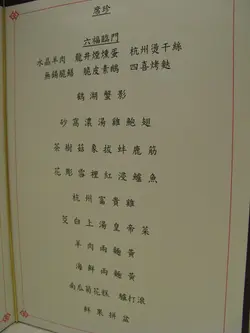 席珍
六福臨門
水晶羊肉 龍井煙燻蛋 杭州燙干絲
無錫脆鱔 脆皮素鵝 四喜烤麩
鶴湖蟹影
砂窩濃湯雞鮑翅
茶樹菇象拔蚌鹿筋
花彫雪裡紅浸鱸魚
杭州富貴雞
莧白上湯皇帝菜
羊肉両麵黃
海鮮両麵黃
南瓜菊花糕 驢打滾
鮮果拼盆